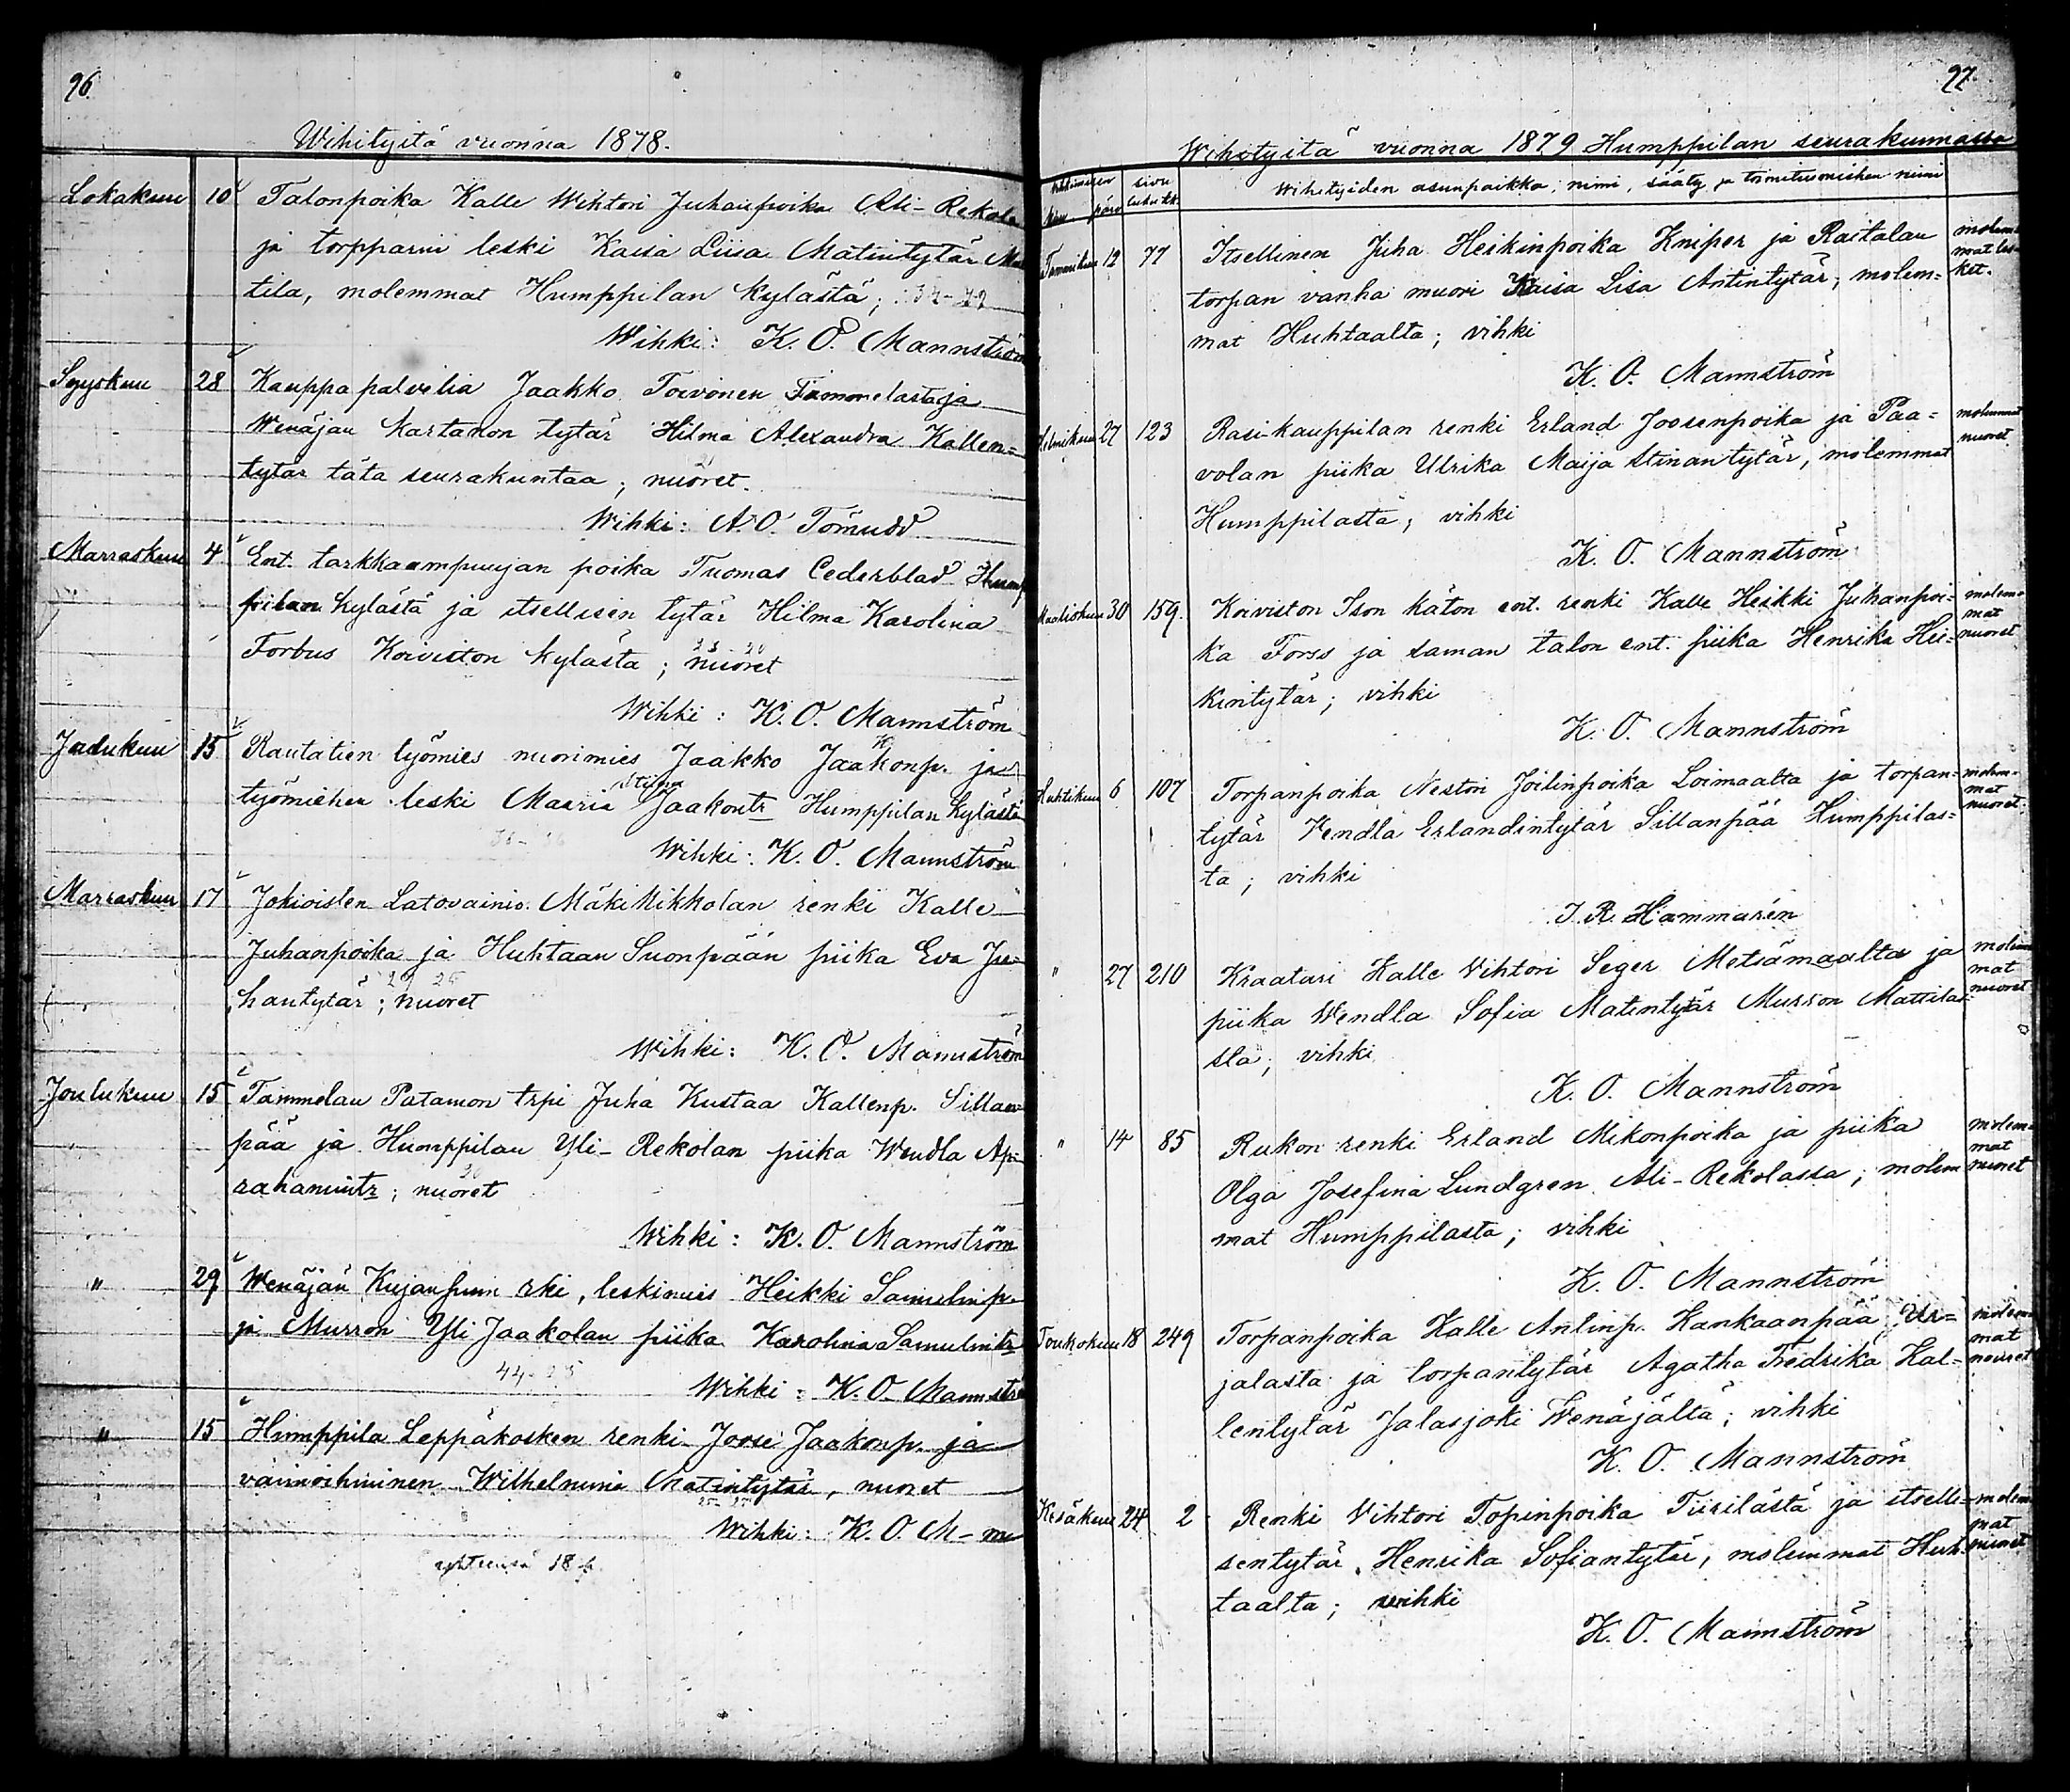 96.
Wihityitä vuonna 1878.
Lokakuu 10 Talonpoika Kalle Wihtori Juhanpoika Ali-Rekola
ja torpparin leski Kaisa Liisa Matintytär
tila, molemmat Humppilan kylästä;
Wihki: K. O. Mannström
Syyskuu 28 Kauppapalvelia Jaakko Toivonen Tammelasta ja
Wenäjän kartanon tytär Hilma Alexandra Kallen-
tytär tätä seurakuntaa; nuoret.
Wihki: A. O. Törnudd
Marraskuu 4 Ent. tarkkaampuujan poika Tuomas Cederblad Hump
pilan kylästä ja itsellisen tytär Hilma Karolina
Forbus Koiviston kylästä; nuoret
Wihki: K. O. Mannström
Joulukuu 15 Rautatien työmies nuorimies Jaakko Jaakonp. ja
Stiina
työmiehen leski Maaria Jaakontr Humppilan kylästä
Wihki: K. O. Mannström
Marraskuu 17 Jokioisten Latovainio Mäki Mikkolan renki Kalle
Juhanpoika ja Huhtaan Suonpään piika Eva Ju-
hantytär; nuoret
Wihki: K. O. Mannström
Joulukuu 15 Tammelan Patamon trpi Juha Kustaa Kallenp. Sillan
pää ja Humppilan Yli-Rekolan piika Wendla Ap-
rahamintr; nuoret
Wihki: K. O. Mannström
" 29 Wenäjän Kujanpuun rki, leskimies Heikki Samulinp.
ja Murron Yli Jaakolan piika Karolina Samulintr
Wihki: K. O. Mannströ
" 15 Humppila Leppäkosken renki Joose Jaakonp. ja
vaimoihminen Wilhelmina Matintytär, nuoret
Wihki: K. O. M-m
yhteensä 18 p.
97.
Wihityitä vuonna 1879 Humppilan seurakunnassa
kuu päivä sivu Wihityiden asunpaikka, nimi, sääty ja toimitusmiehen nimi
Tammikuu 12 77 Itsellinen Juha Heikinpoika Kniper ja Raitalan molem-
mat les-
torpan vanha muori Kaisa Lisa Antintytär, molem- ket.
mat Huhtaalta; vihki
K. O. Mannström
Helmikuu 27 123 Rasi-kauppilan renki Erland Joosenpoika ja Paa- molemmat
nuoret
volan piika Ulrika Maija Stinantytär, molemmat
Humppilasta; vihki
K. O. Mannström
Maaliskuu 30 159. Koiviston Ison käton ent. renki Kalle Heikki Juhanpoi- molem-
mat
ka Forss ja saman talon ent. piika Henrika Hei- nuoret
kintytär; vihki
K. O. Mannström
Huhtikuu 6 107 Torpanpoika Nestori Joilinpoika Loimaalta ja torpan- molem-
mat
tytär Vendla Erlandintytär Sillanpää Humppilas- nuoret.
ta; vihki
J. R. Hammarén
" 27 210 Kraatari Kalle Vihtori Seger Metsämaalta ja molem
mat
piika Wendla Sofia Matintytär Murron Mattilas- nuoret
sta; vihki
K. O. Mannström
" 14 85 Rukon renki Erland Mikonpoika ja piika molem-
mat
Olga Josefina Lundgren Ali-Rekolassa; molem nuoret
mat Humppilasta; vihki
K. O. Mannström
Toukokuu 18 249 Torpanpoika Kalle Antinp. Kankaanpää Ur- molem
mat
jalasta ja torpantytär Agatha Fredrika Kal- nouret
lentytär Jalasjoki Wenäjältä; vihki
K. O. Mannström
Kesäkuu 24 2 Renki Vihtori Topinpoika Tiirilästä ja itselli- molem
mat
sentytär Henrika Sofiantytär, molemmat Huh- nuoret
taalta; vihki
K. O. Mannström